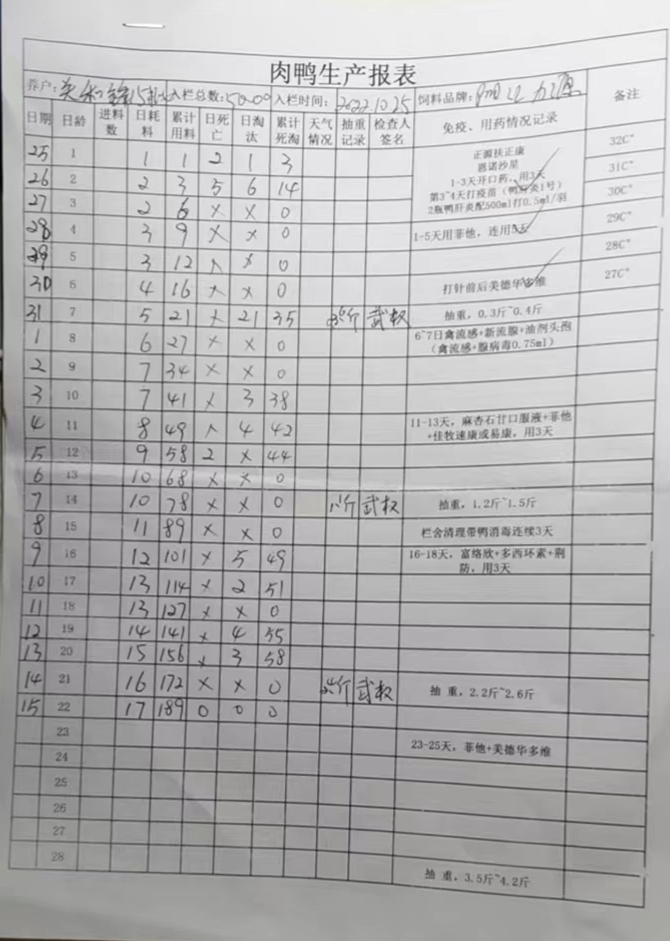 肉鸭生产报表
养户: 入栏总数:5000 入栏时间: 2022.10.25 饲料品牌: 备注
日期 日龄 进料数 日耗料 累计用料 日死亡 日淘汰 累计死淘 天气情况 抽重记录 检查人签名 免疫、用药情况记录
25 1 1 1 2 1 3 正源扶正康 恩诺沙星 32C°
26 2 2 3 5 6 14 1-3天开口药、用3天 31C°
第3~4天打疫苗(鸭肝炎1号)
27 3 2 6 × × 0 2瓶鸭肝炎配500ml打0.5ml/羽 30C°
28 4 3 9 × × 0 1-5天用菲他，连用5天 29C°
29 5 3 12 × × 0 28C°
30 6 4 16 × × 0 打针前后美德华多维 27C°
31 7 5 21 × 21 35 武权 抽重，0.3斤~0.4斤
1 8 6 27 × × 0 6~7日禽流感+新流腺+油剂头孢
(禽流感+腺病毒0.75ml)
2 9 7 34 × × 0
3 10 7 41 × 3 38
4 11 8 49 × 4 42 11-13天，麻杏石甘口服液+菲他
+佳牧速康或易康，用3天
5 12 9 58 2 × 44
6 13 10 68 × × 0
7 14 10 78 × × 0 武权 抽重，1.2斤~1.5斤
8 15 11 89 × × 0 栏舍清理带鸭消毒连续3天
9 16 12 101 × 5 49 16-18天，富络欣+多西环素+荆
防，用3天
10 17 13 114 × 2 51
11 18 13 127 × × 0
12 19 14 141 × 4 55
13 20 15 156 × 3 58
14 21 16 172 × × 0 武权 抽 重，2.2斤~2.6斤
15 22 17 189 0 0 0
23 23-25天，菲他+美德华多维
24
25
26
27
28 抽 重，3.5斤~4.2斤